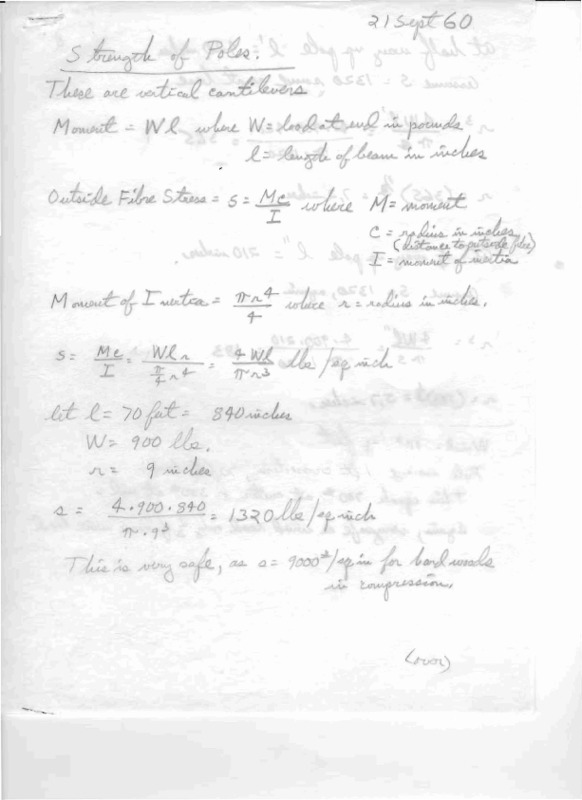 21 Sept 60
Strength of Poles.
These are vertical cantilevers
Moment = Wl where W = load at end in pounds
l = length of beam in inches
Outside Fibre Stress = s = Mc/I where M = moment
c = radius in inches
(distance to outside fibre)
I = moment of inertia
Moment of Inertia = πr⁴/4 where r = radius in inches.
s = Mc/I = Wlr/(π/4 r⁴) = 4Wl/πr³ lbs/sq inch
let l = 70 feet = 840 inches
W = 900 lbs.
r = 9 inches
s = 4·900·840/π·9³ = 1320 lbs/sq inch
This is very safe, as s = 9000#/sq in for hard woods
in compression.
(over)